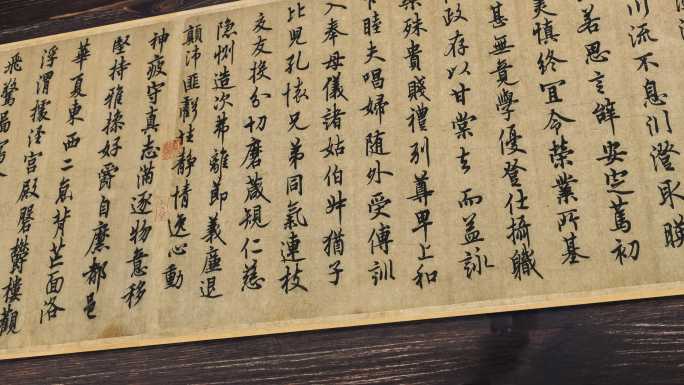 川流不息川澄取暎
若思言辭安定篤初
美慎終宜令榮業所基
甚無竟學優登仕攝職
政存以甘棠去而益詠
樂殊貴賤禮別尊卑上和
下睦夫唱婦随外受傅訓
入奉母儀諸姑伯叔猶子
比兒孔懷兄弟同氣連枝
交友投分切磨箴規仁慈
隱惻造次弗離節義廉退
顛沛匪虧性靜情逸心動
神疲守真志滿逐物意移
堅持雅操好爵自縻都邑
華夏東西二京背芒面洛
浮渭據涇宮殿磐鬱樓觀
飛驚圖寫